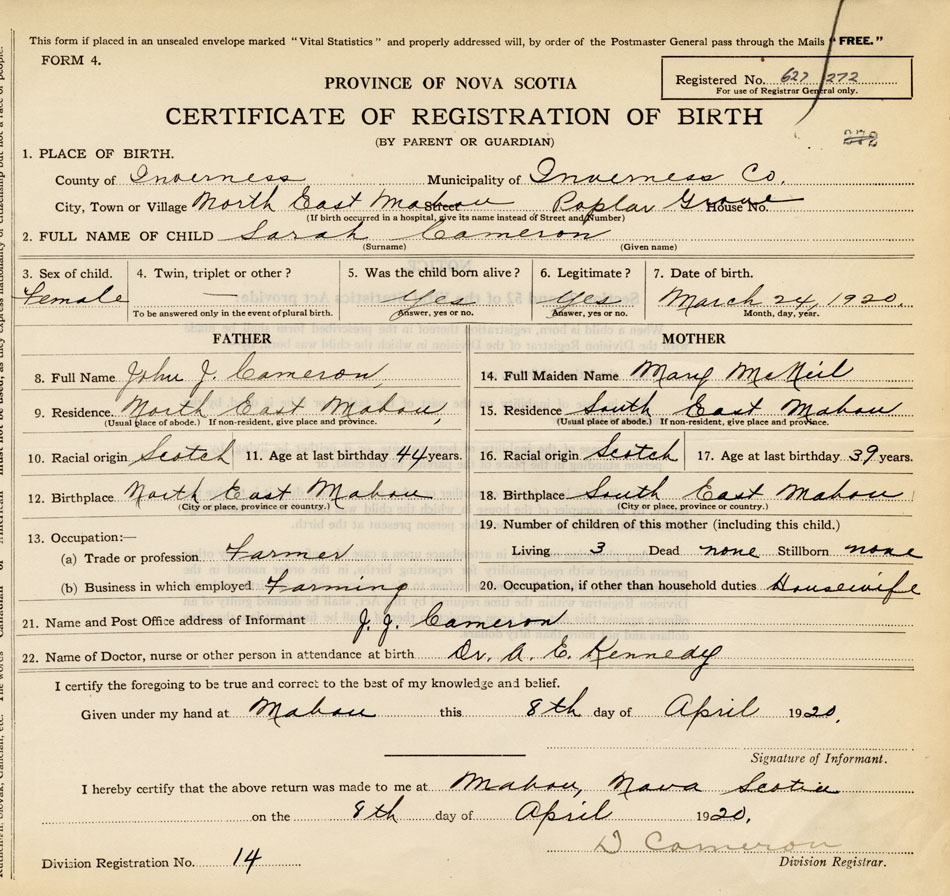 This form if placed in an unsealed envelope marked "Vital Statistics" and properly addressed will, by order of the Postmaster General pass through the Mails "FREE."
FORM 4.
Registered No. 627 272
For use of Registrar General only.
PROVINCE OF NOVA SCOTIA
CERTIFICATE OF REGISTRATION OF BIRTH
(BY PARENT OR GUARDIAN)
1. PLACE OF BIRTH.
County of Inverness Municipality of Inverness Co.
City, Town or Village North East Mabou Street Poplar Grove House No.
(If birth occurred in a hospital, give its name instead of Street and Number)
2. FULL NAME OF CHILD Sarah Cameron
(Surname) (Given name)
3. Sex of child. 4. Twin, triplet or other? 5. Was the child born alive? 6. Legitimate? 7. Date of birth.
Female — Yes Yes March 24, 1920.
To be answered only in the event of plural birth. Answer, yes or no. Answer, yes or no. Month, day, year.
FATHER
8. Full Name John J. Cameron,
9. Residence. North East Mabou,
(Usual place of abode.) If non-resident, give place and province.
10. Racial origin Scotch 11. Age at last birthday 44 years.
12. Birthplace North East Mabou
(City or place, province or country.)
13. Occupation:—
(a) Trade or profession Farmer
(b) Business in which employed Farming
MOTHER
14. Full Maiden Name Mary McNeil
15. Residence South East Mabou
(Usual place of abode.) If non-resident, give place and province.
16. Racial origin Scotch 17. Age at last birthday 39 years.
18. Birthplace South East Mabou
(City or place, province or country.)
19. Number of children of this mother (including this child.)
Living 3 Dead none Stillborn none
20. Occupation, if other than household duties Housewife
21. Name and Post Office address of Informant J. J. Cameron
22. Name of Doctor, nurse or other person in attendance at birth Dr. A. E. Kennedy
I certify the foregoing to be true and correct to the best of my knowledge and belief.
Given under my hand at Mabou this 8th day of April 1920.
Signature of Informant.
I hereby certify that the above return was made to me at Mabou, Nova Scotia
on the 8th day of April 1920.
D Cameron
Division Registration No. 14 Division Registrar.